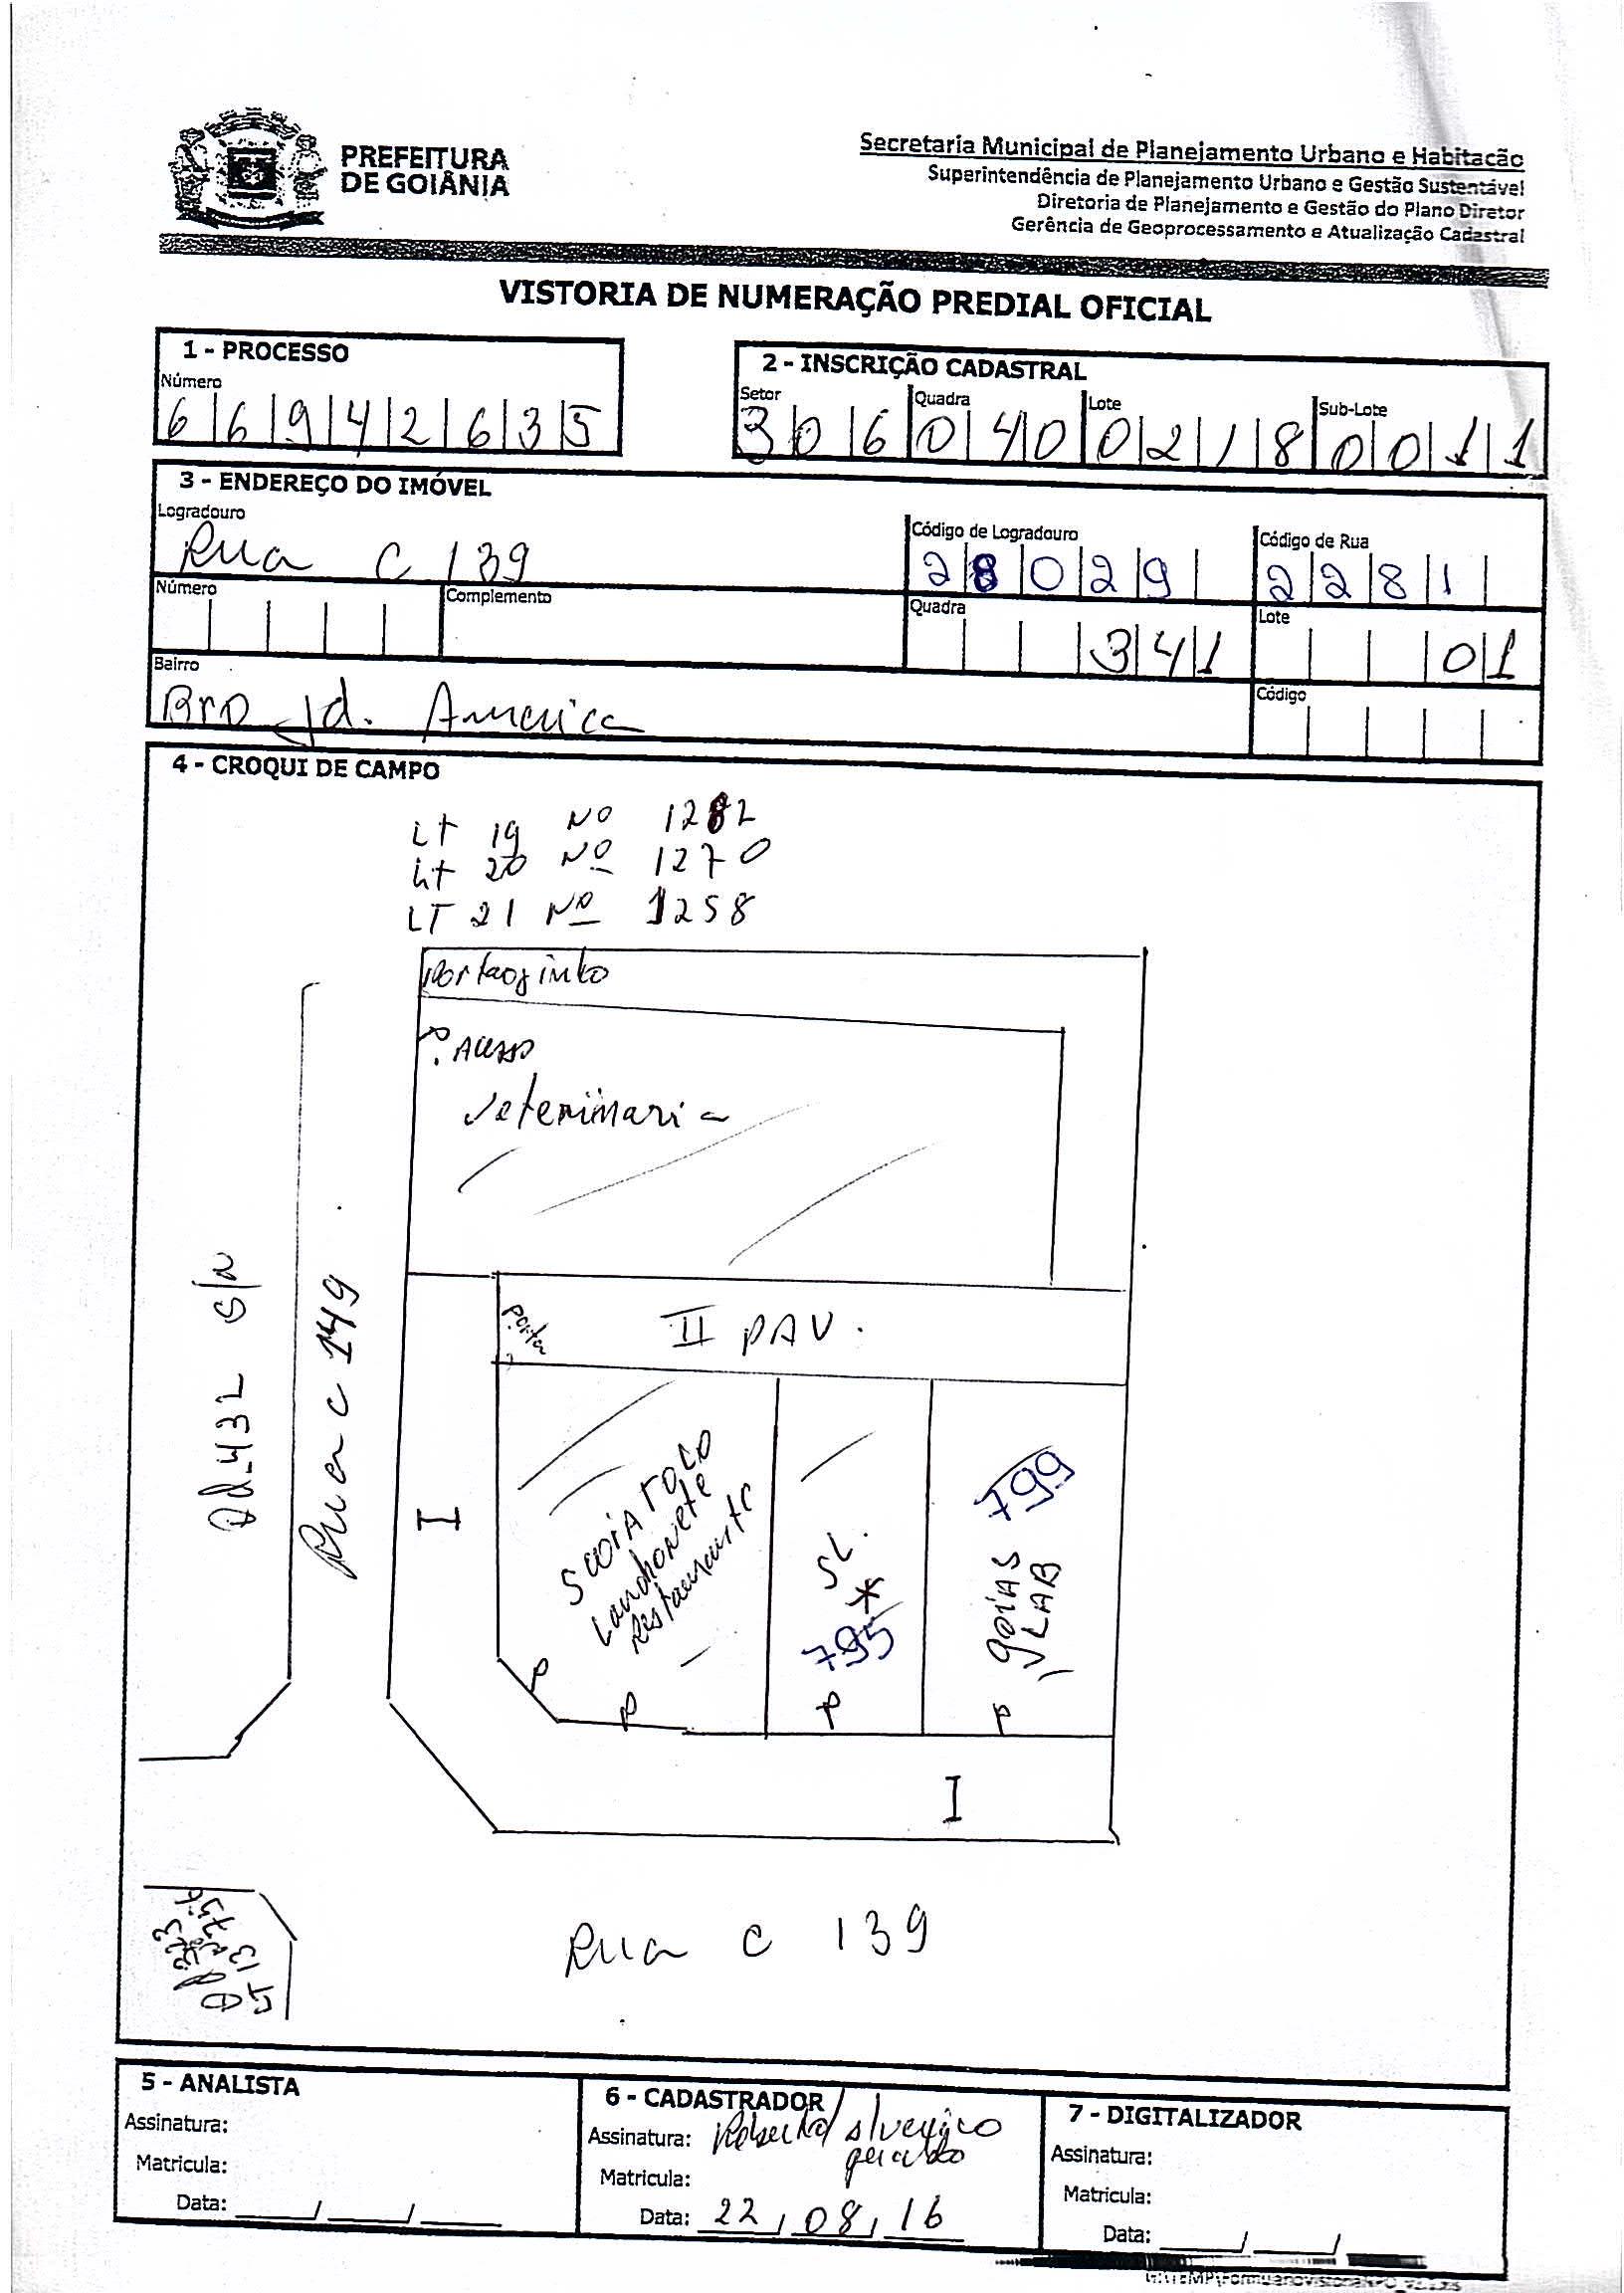 PREFEITURA
DE GOIÂNIA
Secretaria Municipal de Planejamento Urbano e Habitação
Superintendência de Planejamento Urbano e Gestão Sustentável
Diretoria de Planejamento e Gestão do Plano Diretor
Gerência de Geoprocessamento e Atualização Cadastral
VISTORIA DE NUMERAÇÃO PREDIAL OFICIAL
1 - PROCESSO
Número
6 6 9 4 2 6 3 5
2 - INSCRIÇÃO CADASTRAL
Setor Quadra Lote Sub-Lote
3 0 6 0 4 0 0 2 1 8 0 0 1 1
3 - ENDEREÇO DO IMÓVEL
Logradouro Código de Logradouro Código de Rua
Rua C 139 2 8 0 2 9 2 2 8 1
Número Complemento Quadra Lote
3 4 1 0 1
Bairro Código
Bro Jd. America
4 - CROQUI DE CAMPO
LT 19 Nº 1282
Lt 20 Nº 1270
LT 21 Nº 1258
P. Acesso
Veterinaria
Qd 432 S/N
Rua C 149
Porta
II PAV.
I
Lanchonete
Restaurante
SL.
*
795
799
GOIÁS
LAB
P
P
P
P
I
LT 13
Rua C 139
5 - ANALISTA
Assinatura:
Matricula:
Data: / /
6 - CADASTRADOR
Assinatura:
Matricula:
Data: 22 / 08 / 16
7 - DIGITALIZADOR
Assinatura:
Matricula:
Data: / /